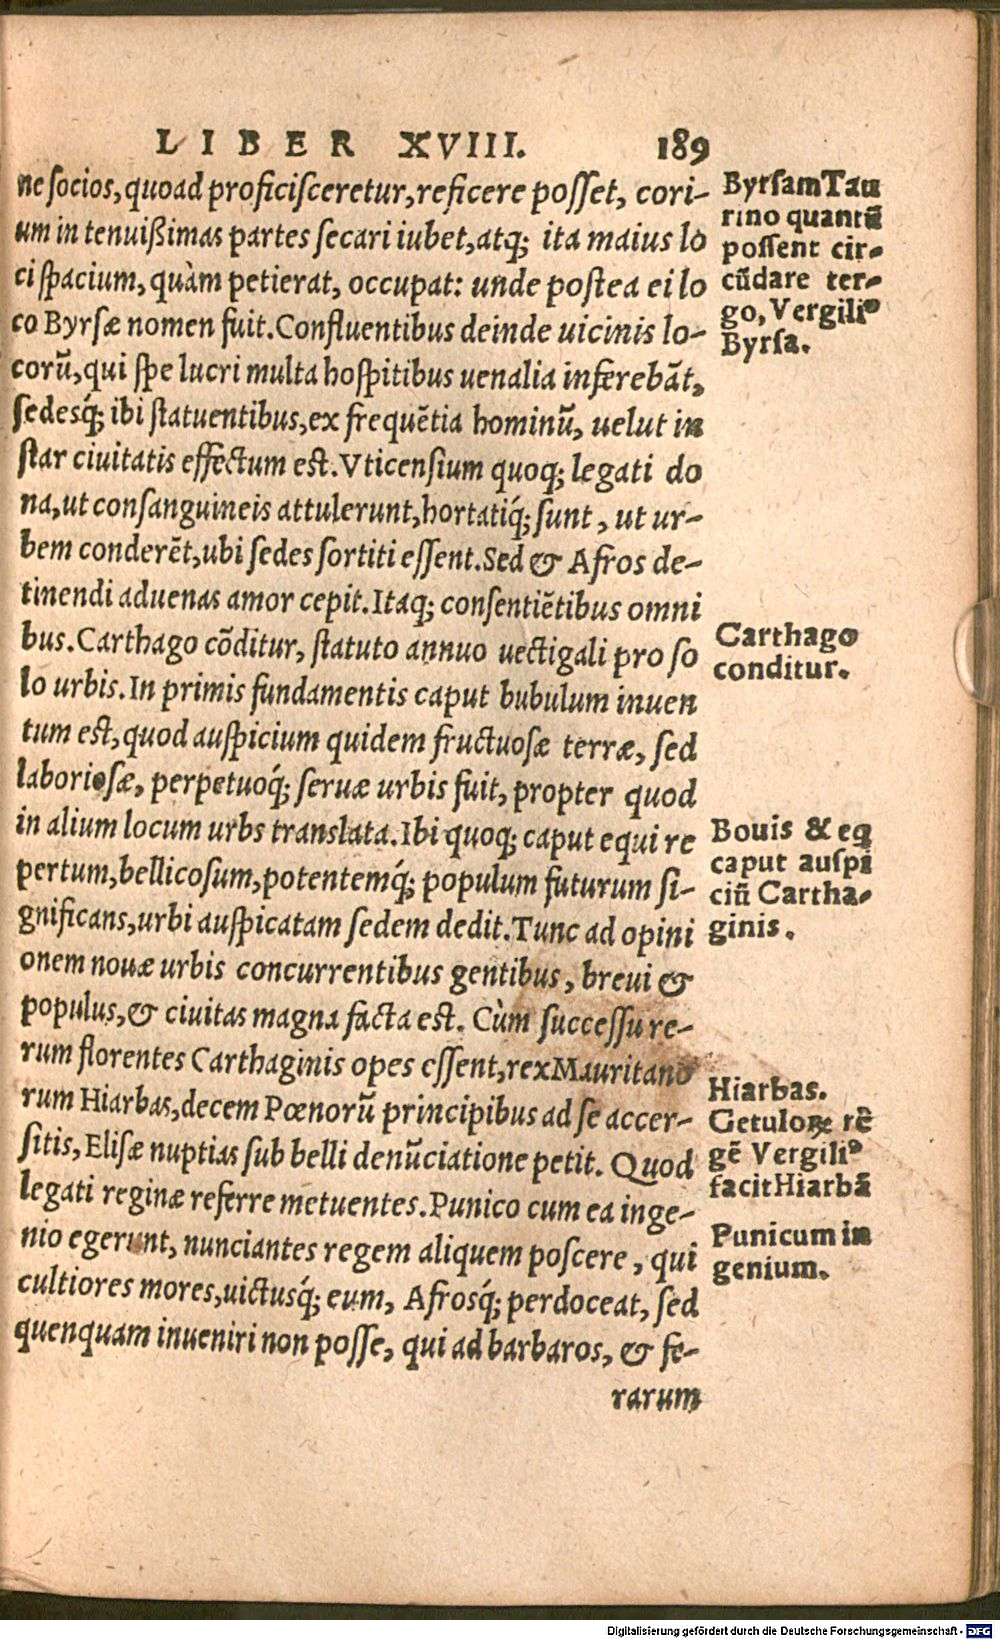 LIBER XVIII. 189
ne socios, quoad proficisceretur, reficere posset, cori-
um in tenuißimas partes secari iubet, atq; ita maius lo
ci spacium, quàm petierat, occupat: unde postea ei lo
co Byrsæ nomen fuit. Confluentibus deinde uicinis lo-
corũ, qui spe lucri multa hospitibus uenalia inferebãt,
sedesq́; ibi statuentibus, ex frequẽtia hominũ, uelut in
star ciuitatis effectum est. Vticensium quoq; legati do
na, ut consanguineis attulerunt, hortatiq́; sunt, ut ur-
bem conderẽt, ubi sedes sortiti essent. Sed & Afros de-
tinendi aduenas amor cepit. Itaq; consentiẽtibus omni
bus. Carthago cõditur, statuto annuo uectigali pro so
lo urbis. In primis fundamentis caput bubulum inuen
tum est, quod auspicium quidem fructuosæ terræ, sed
laboriosæ, perpetuoq́; seruæ urbis fuit, propter quod
in alium locum urbs translata. Ibi quoq; caput equi re
pertum, bellicosum, potentemq́; populum futurum si-
gnificans, urbi auspicatam sedem dedit. Tunc ad opini
onem nouæ urbis concurrentibus gentibus, brevi &
populus, & ciuitas magna facta est. Cùm successu re-
rum florentes Carthaginis opes essent, rex Mauritano
rum Hiarbas, decem Pœnorũ principibus ad se accer-
sitis, Elisæ nuptias sub belli denũciatione petit. Quod
legati reginæ referre metuentes. Punico cum ea inge-
nio egerunt, nunciantes regem aliquem poscere, qui
cultiores mores, uictusq́; eum, Afrosq́; perdoceat, sed
quenquam inueniri non posse, qui ad barbaros, & fe-
rarum
Byrsam Tau
rino quantũ
possent cir-
cũdare ter-
go, Vergiliꝰ
Byrsa.
Carthago
conditur.
Bouis & eq
caput auspi
ciũ Cartha-
ginis.
Hiarbas.
Getuloꝝ rē
gẽ Vergiliꝰ
facit Hiarbã
Punicum in
genium.
Digitalisierung gefördert durch die Deutsche Forschungsgemeinschaft - DFG